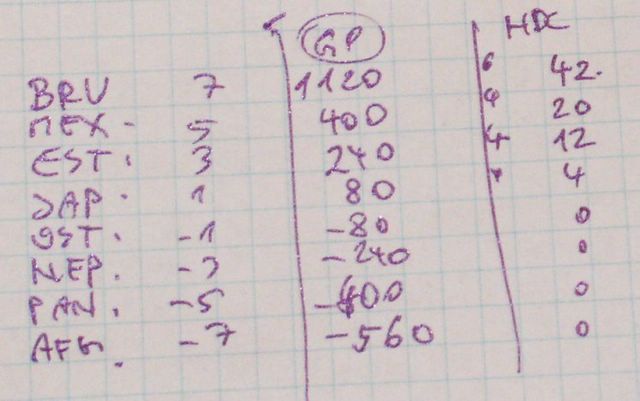 GP HDC
BRU 7 1120 6 42.
MEX. 5 400 20
EST. 3 240 4 12
JAP. 1 80 4
OST. -1 -80 0
NEP. -3 -240 0
PAN. -5 -400 0
AFG. -7 -560 0